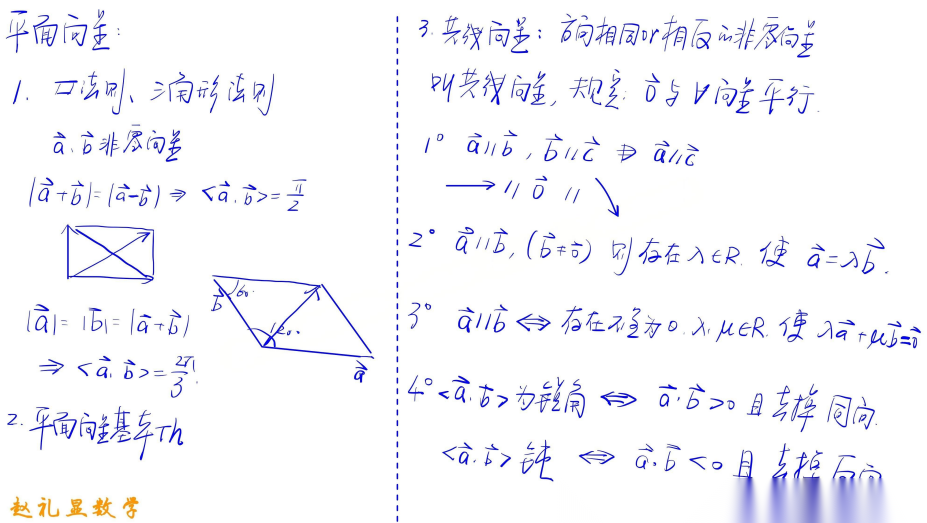 平面向量:
1. 口法则、三角形法则
a⃗、b⃗非零向量
|a⃗+b⃗|=|a⃗-b⃗| ⇒ <a⃗.b⃗>=π/2
b⃗ 60°
120°
a⃗
|a⃗|=|b⃗|=|a⃗+b⃗|
⇒ <a⃗.b⃗>=2π/3.
2. 平面向量基本Th
赵礼显数学
3. 共线向量: 方向相同or相反的非零向量
叫共线向量, 规定: 0⃗与∀向量平行.
1° a⃗∥b⃗, b⃗∥c⃗ ⇏ a⃗∥c⃗
→ ∥ 0⃗ ∥ ↘
2° a⃗∥b⃗, (b⃗≠0⃗) 则存在λ∈R. 使 a⃗=λb⃗.
3° a⃗∥b⃗ ⇔ 存在不全为0.λ.μ∈R. 使 λa⃗+μb⃗=0⃗
4° <a⃗.b⃗>为锐角 ⇔ a⃗·b⃗>0 且去掉同向.
<a⃗.b⃗>钝 ⇔ a⃗·b⃗<0 且去掉反向